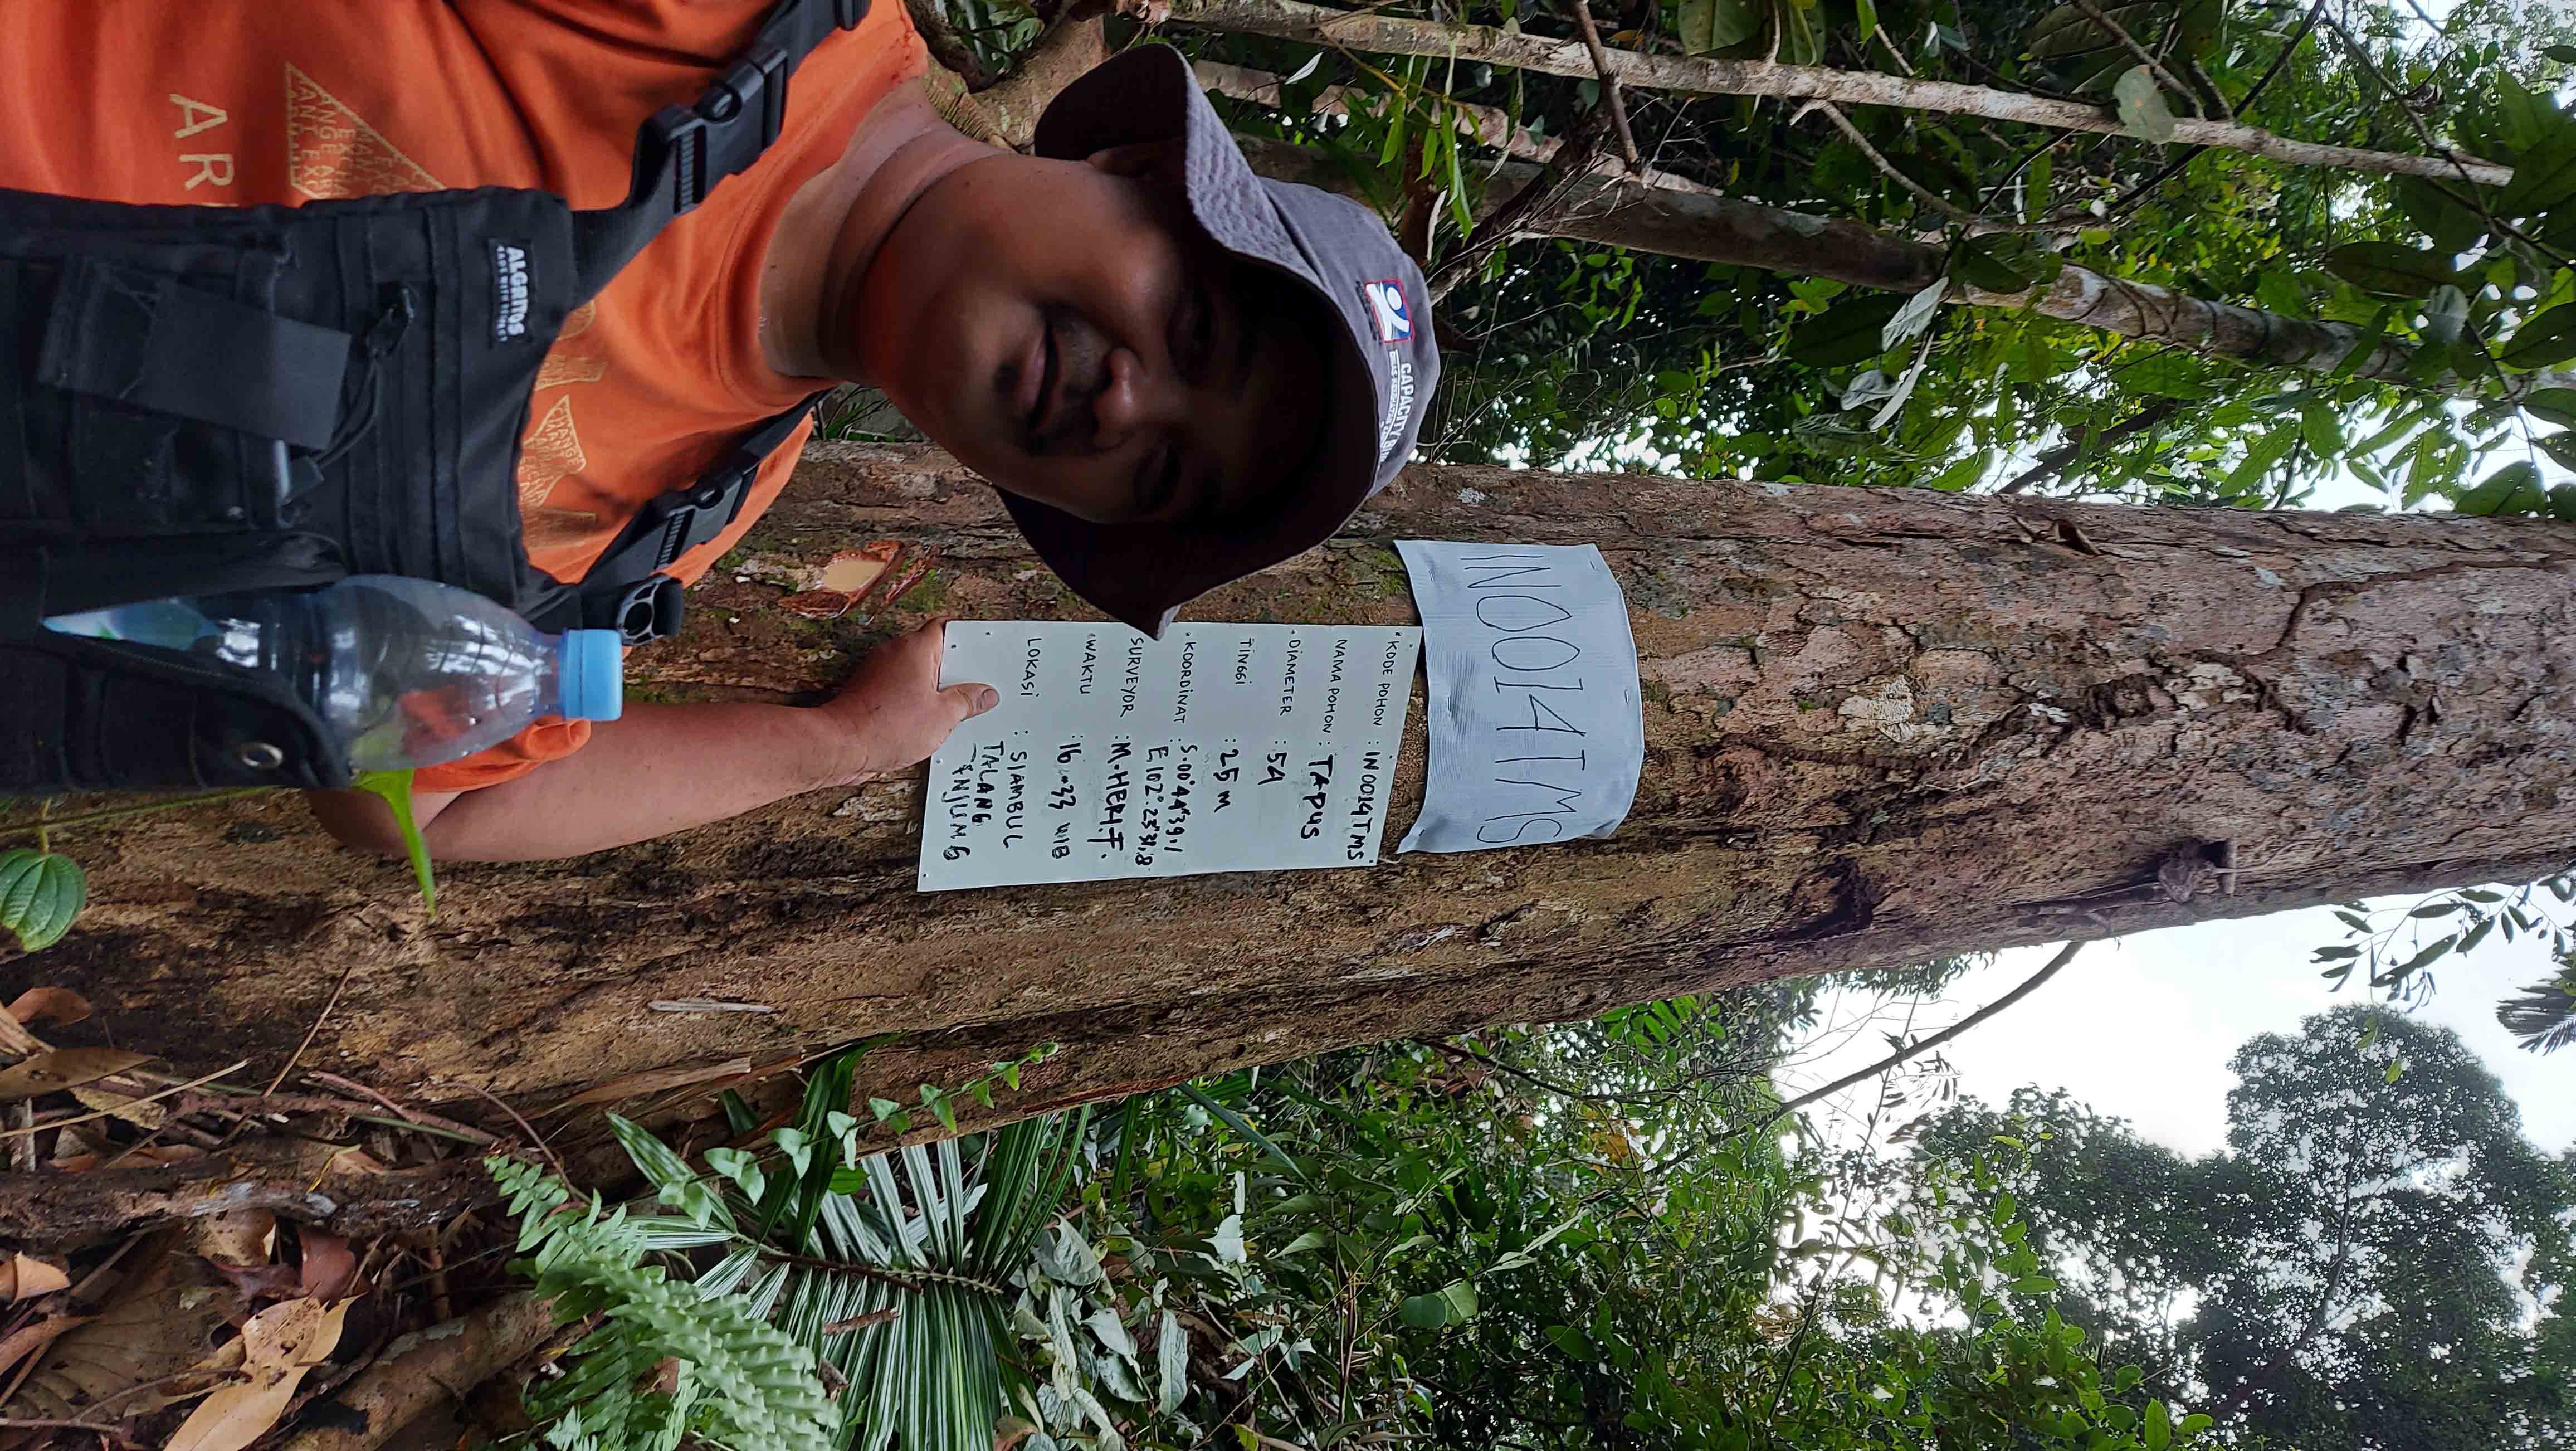 IN0014TMS
KODE POHON : IN0014TMS
NAMA POHON : TAPUS
DIAMETER : 54
TINGGI : 25 m
KOORDINAT : S.00°44'39,1
E 102°.25'31,8
SURVEYOR : M.HERI.F.
WAKTU : 16.33 WIB
LOKASI : SIAMBUL
TALANG
TANJUNG
CAPACITY
ALGATOS
AR